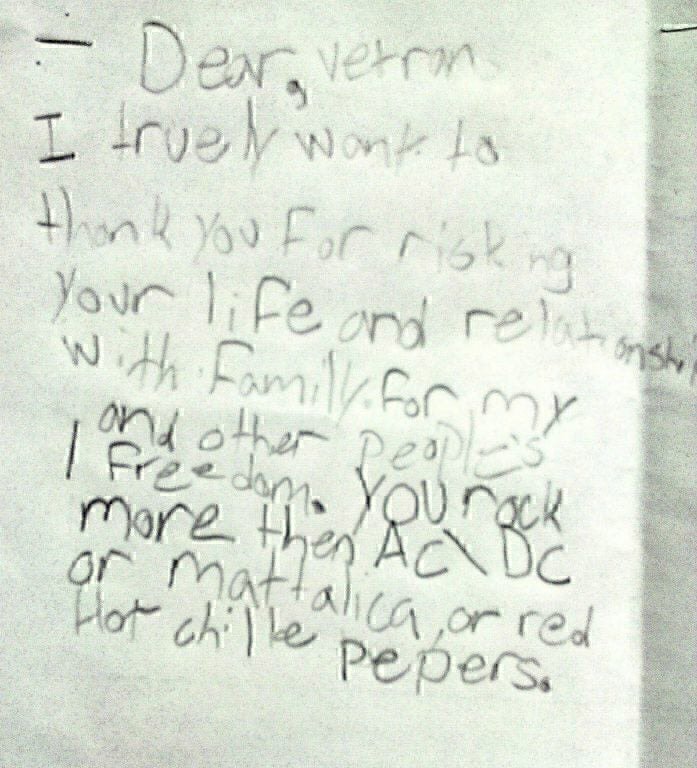 Dear, vetran
I truely want to
thank you for risking
your life and relationshi
with family for my
and other people's
freedom. You rock
more then AC\DC
or mattalica, or red
Hot chille pepers.